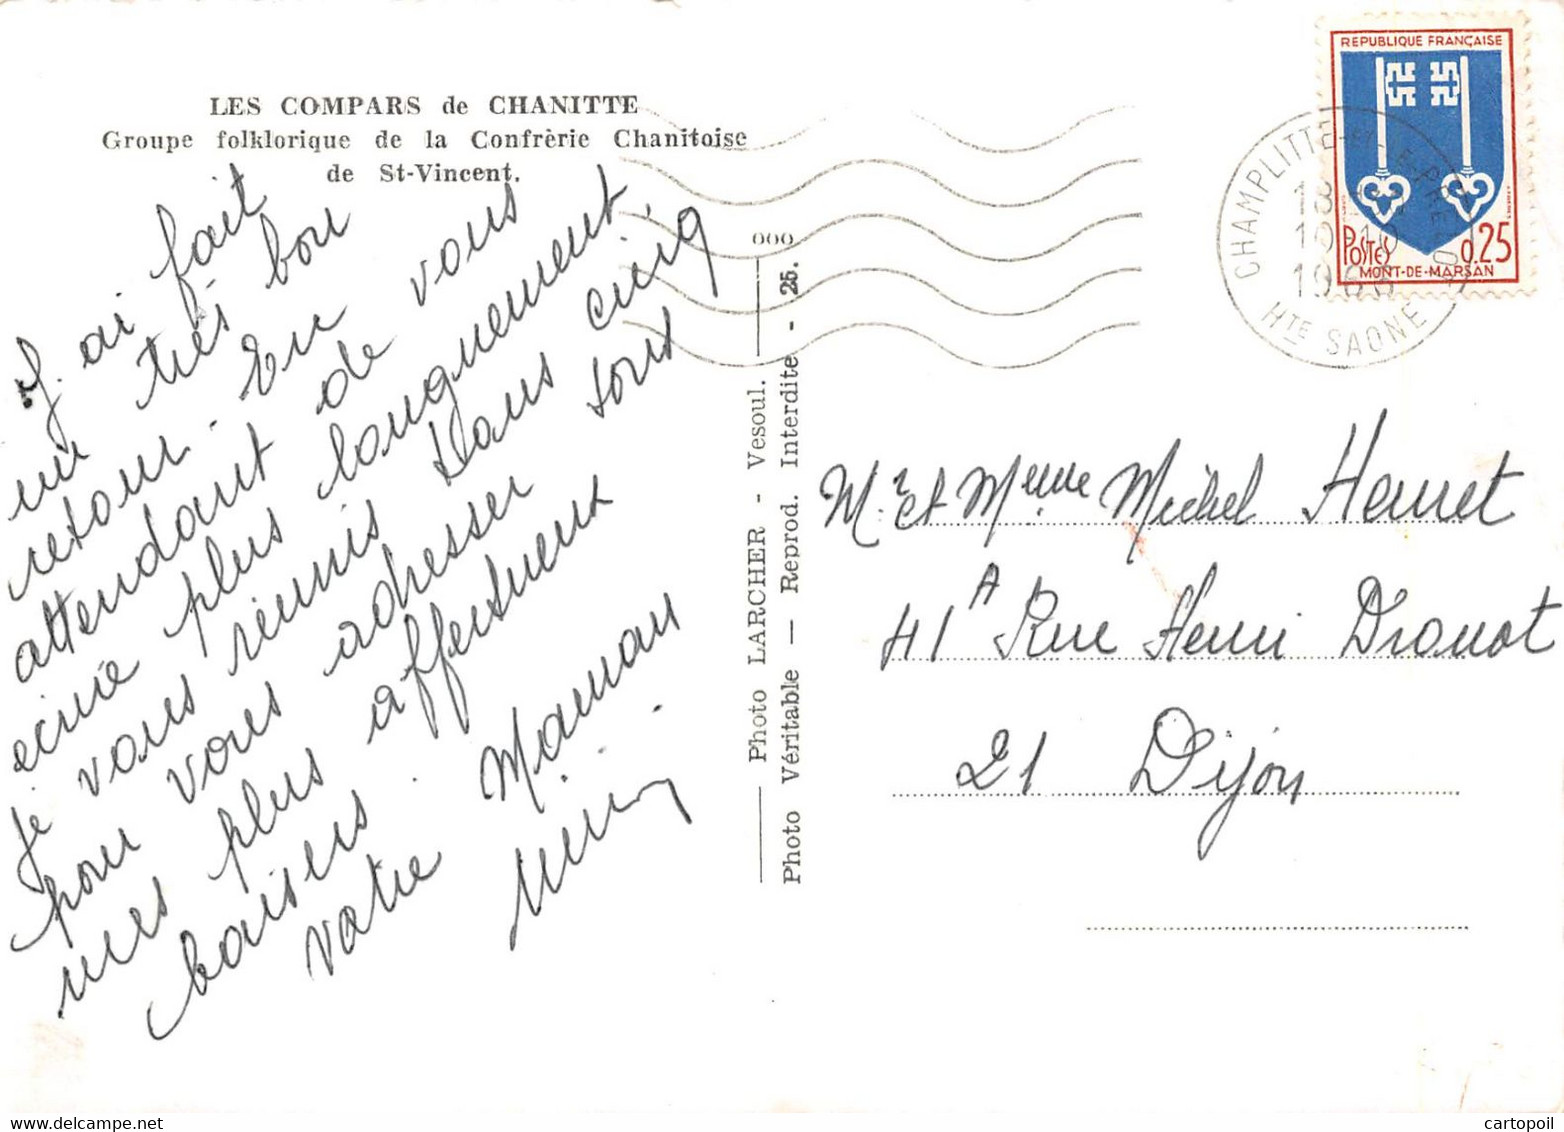 LES COMPARS de CHANITTE
Groupe folklorique de la Confrèrie Chanitoise
de St-Vincent.
J. ai fait
un très bon
retour. En vous
attendant de vous
écrire plus longuement.
je vous réunis dans cinq
pour vous adresser tous
mes plus affectueux
baisers.
votre Maman
Mimi
ooo
Photo LARCHER - Vesoul.
Photo Véritable — Reprod. Interdite - 25.
REPUBLIQUE FRANÇAISE
POSTES 0.25
MONT-DE-MARSAN
CHAMPLITTE-ET-LE-PRELOT
HTE SAONE
18
1966
M. et Mme Michel Hemet
41 A Rue Henri Drouot
21 Dijon
cartopoil